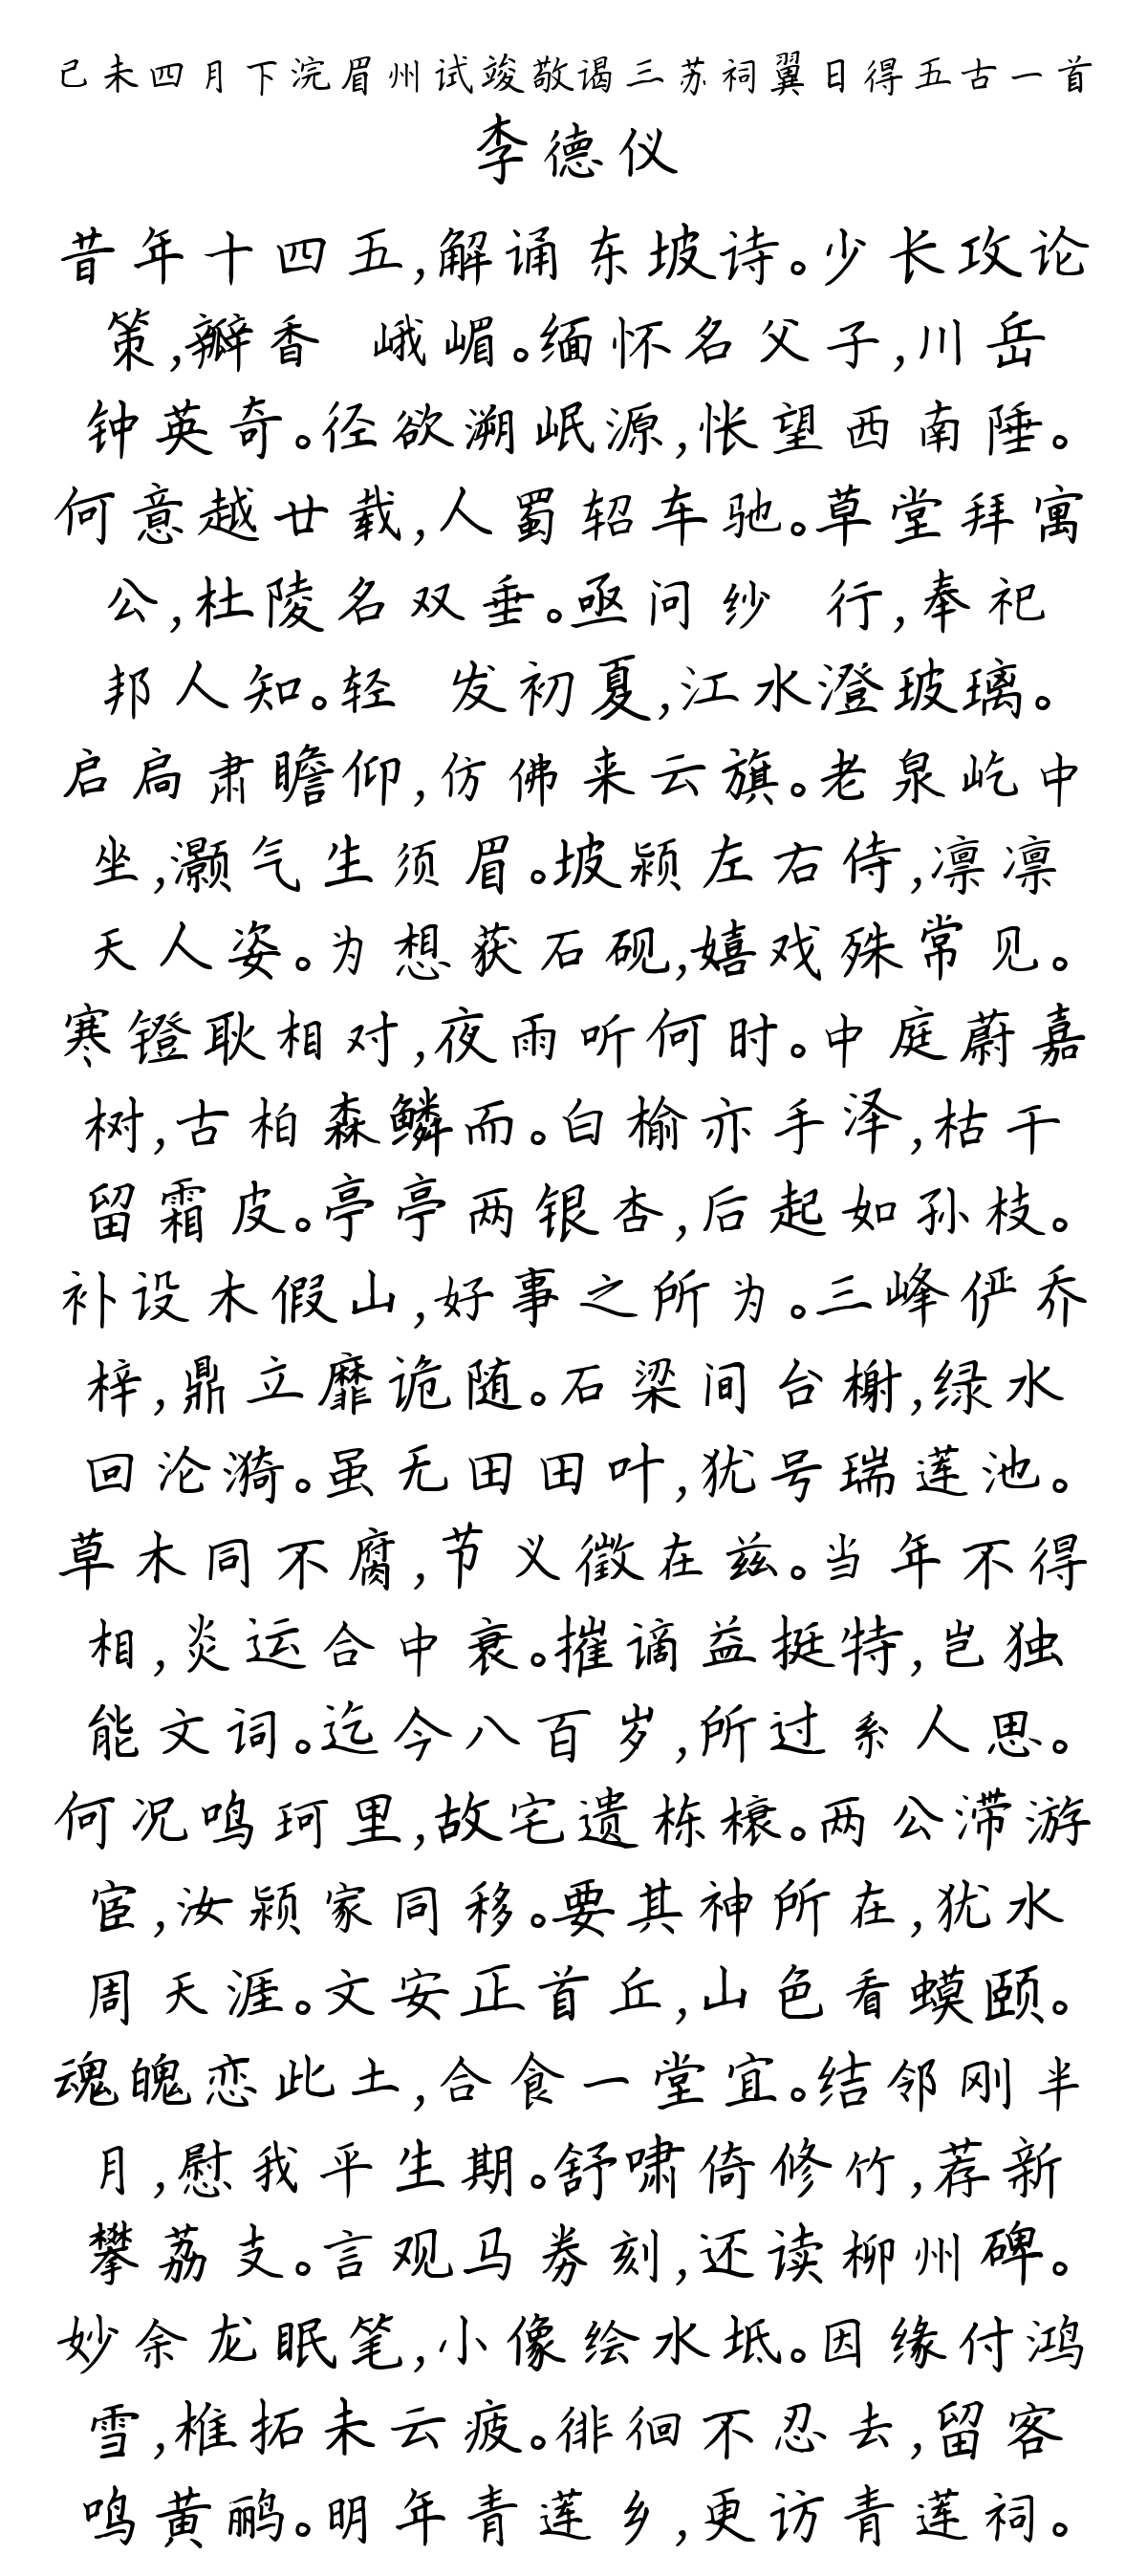 己未四月下浣眉州试竣敬谒三苏祠翼日得五古一首
李德仪
昔年十四五,解诵东坡诗。少长攻论
策,瓣香 峨嵋。缅怀名父子,川岳
钟英奇。径欲溯岷源,怅望西南陲。
何意越廿载,人蜀轺车驰。草堂拜寓
公,杜陵名双垂。亟问纱 行,奉祀
邦人知。轻 发初夏,江水澄玻璃。
启扃肃瞻仰,仿佛来云旗。老泉屹中
坐,灏气生须眉。坡颍左右侍,凛凛
天人姿。为想获石砚,嬉戏殊常见。
寒镫耿相对,夜雨听何时。中庭蔚嘉
树,古柏森鳞而。白榆亦手泽,枯干
留霜皮。亭亭两银杏,后起如孙枝。
补设木假山,好事之所为。三峰俨乔
梓,鼎立靡诡随。石梁间台榭,绿水
回沦漪。虽无田田叶,犹号瑞莲池。
草木同不腐,节义徵在兹。当年不得
相,炎运合中衰。摧谪益挺特,岂独
能文词。迄今八百岁,所过系人思。
何况鸣珂里,故宅遗栋榱。两公滞游
宦,汝颍家同移。要其神所在,犹水
周天涯。文安正首丘,山色看蟆颐。
魂魄恋此土,合食一堂宜。结邻刚半
月,慰我平生期。舒啸倚修竹,荐新
攀荔支。言观马券刻,还读柳州碑。
妙余龙眠笔,小像绘水坻。因缘付鸿
雪,椎拓未云疲。徘徊不忍去,留客
鸣黄鹂。明年青莲乡,更访青莲祠。